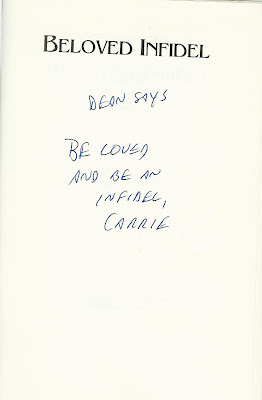 BELOVED INFIDEL
DEAN SAYS
BE LOVED
AND BE AN
INFIDEL,
CARRIE